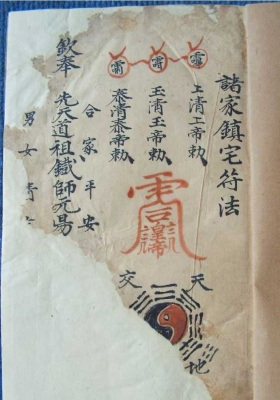 諸家鎮宅符法
上清上帝勅
玉清玉帝勅
泰清泰帝勅
天地
交
合家平安
欽奉 先天道祖鐵師元易
男女